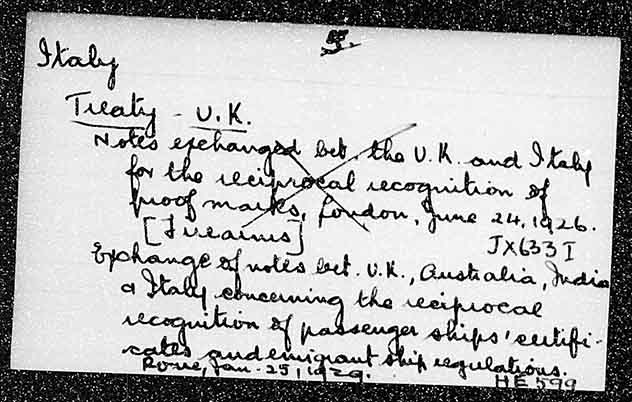 5.
Italy
Treaty - U.K.
Notes exchanged bet. the U.K. and Italy
for the reciprocal recognition of
proof marks, London, June 24, 1926.
[Firearms] JX633 I
Exchange of notes bet. U.K., Australia, India
& Italy concerning the reciprocal
recognition of passenger ships' certifi-
cates and emigrant ship regulations.
Rome, Jan. 25, 1929.
HE 599